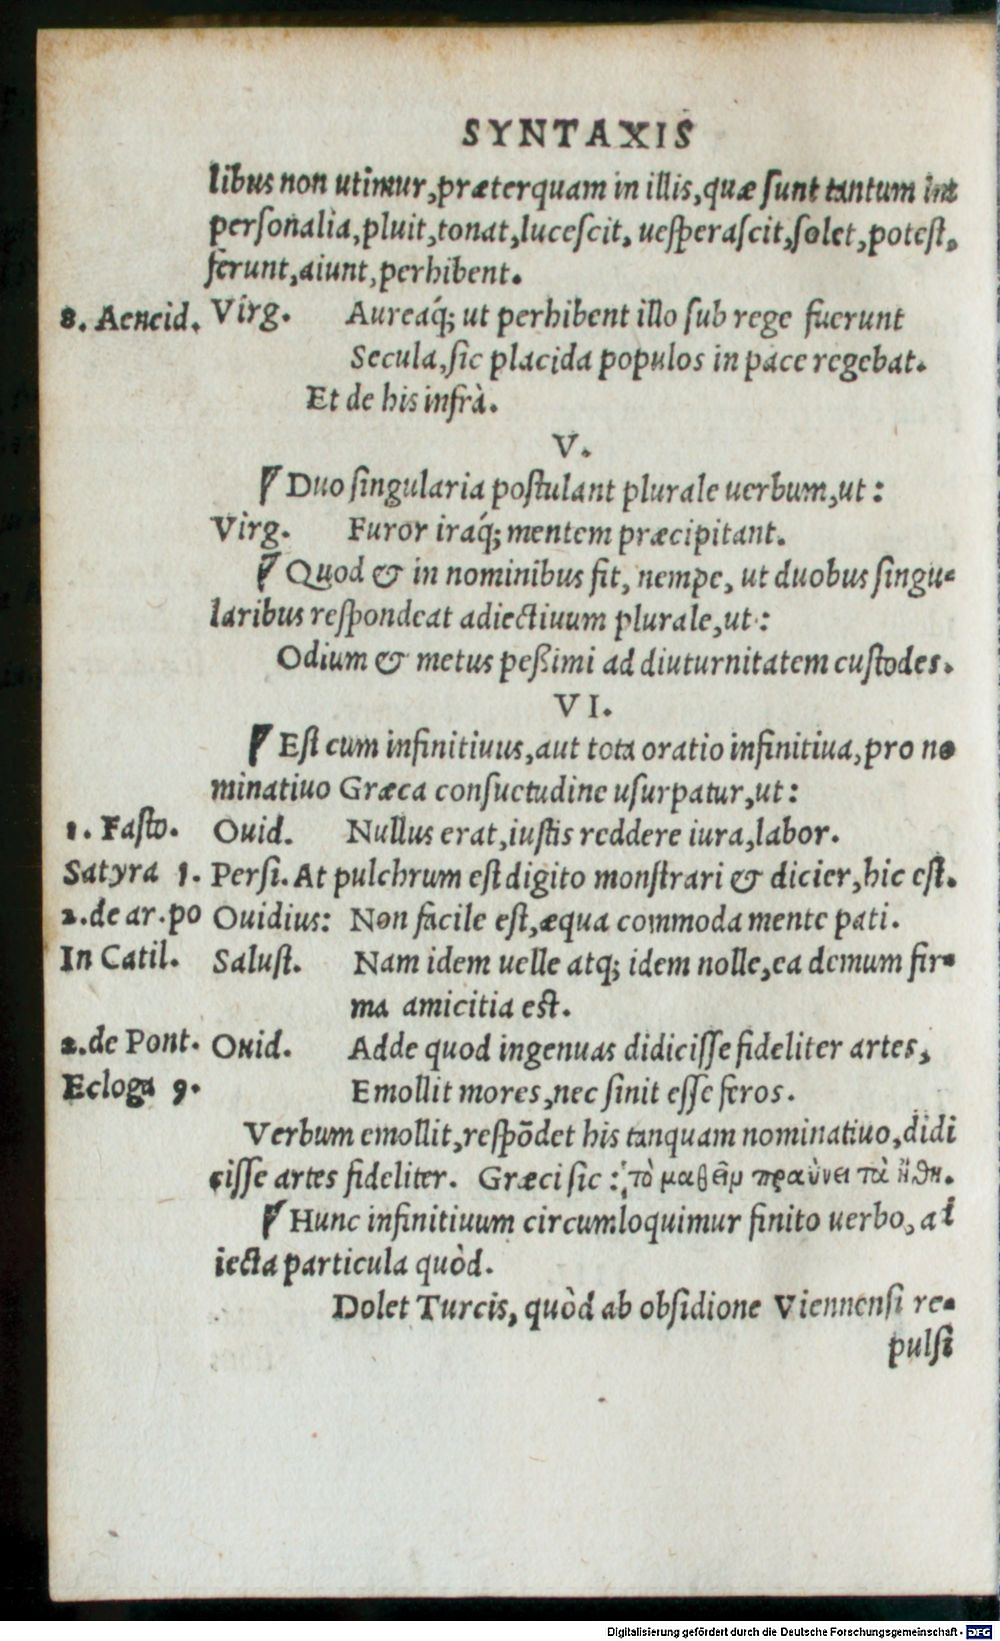 SYNTAXIS
libus non utimur, præterquam in illis, quæ sunt tantum im
personalia, pluit, tonat, lucescit, uesperascit, solet, potest,
ferunt, aiunt, perhibent.
8. Aeneid. Virg. Aureáq; ut perhibent illo sub rege fuerunt
Secula, sic placida populos in pace regebat.
Et de his infrà.
V.
¶ Duo singularia postulant plurale uerbum, ut:
Virg. Furor iraq́; mentem præcipitant.
¶ Quod & in nominibus fit, nempe, ut duobus singu-
laribus respondeat adiectiuum plurale, ut:
Odium & metus peßimi ad diuturnitatem custodes.
VI.
¶ Est cum infinitiuus, aut tota oratio infinitiua, pro no
minatiuo Græca consuetudine usurpatur, ut:
1. Fasto. Ouid. Nullus erat, iustis reddere iura, labor.
Satyra 1. Persi. At pulchrum est digito monstrari & dicier, hic est.
2. de ar. po Ouidius: Non facile est, æqua commoda mente pati.
In Catil. Salust. Nam idem uelle atq; idem nolle, ea demum fir-
ma amicitia est.
2. de Pont. Ouid. Adde quod ingenuas didicisse fideliter artes,
Ecloga 9. Emollit mores, nec sinit esse feros.
Verbum emollit, respōdet his tanquam nominatiuo, didi
cisse artes fideliter. Græci sic: τὸ μαθεῖν πραΰνει τὰ ἤθη.
¶ Hunc infinitiuum circumloquimur finito uerbo, ad
iecta particula quòd.
Dolet Turcis, quòd ab obsidione Viennensi re-
pulsi
Digitalisierung gefördert durch die Deutsche Forschungsgemeinschaft - DFG